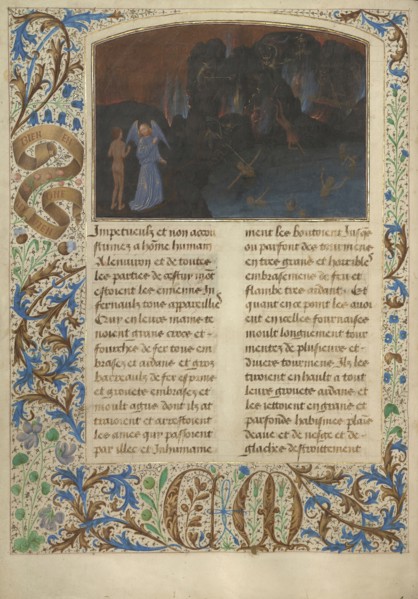 BIEN EN
AVIENGNE
Impetueulx et non accou
stumez a home humain
A lenuiron et de toutes
les parties de cestuy mõt
estoient les ennemis In
fernaulx tous appareillies
Quy en leurs mains te
noient grans crocz et
fourches de fer tous em
brasez et ardans et gros
barreaulx de fer espines
et grouetz embrasez et
moult agus dont ilz at
traioient et arrestoient
les ames quy passoient
par illec et Inhumaine
ment les boutoient Jusques
ou parfont des tourmens
en tres grans et horribles
embrasemens de feu et
flambe tres ardant. Et
quant en ce point les auo
ient en icelles fournaises
moult longuement tour
mentez de plusieurs et
diuers tourmens. Ilz les
tiroient en hault a tout
leurs grouetz ardans et
les iettoient en grans et
parfonds habismes plais
deaue et de neige et de
glaches destroittement
C M